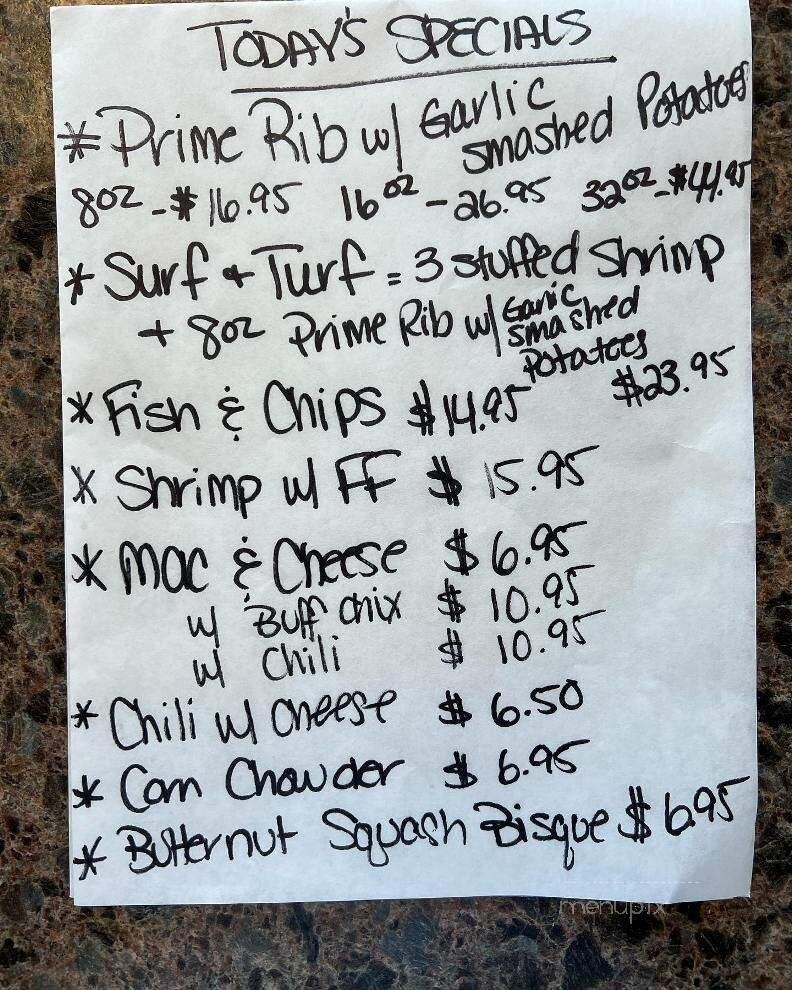 TODAY'S SPECIALS
* Prime Rib w/ Garlic smashed Potatoes
8oz - $16.95 16oz - 26.95 32oz - $44.95
* Surf + Turf = 3 stuffed shrimp
+ 8oz Prime Rib w/ Garlic smashed Potatoes
$23.95
* Fish & Chips $14.95
* Shrimp w/ FF $15.95
* Mac & Cheese $6.95
w/ Buff Chix $10.95
w/ Chili $10.95
* Chili w/ Cheese $6.50
* Corn Chowder $6.95
* Butternut Squash Bisque $6.95
menupix